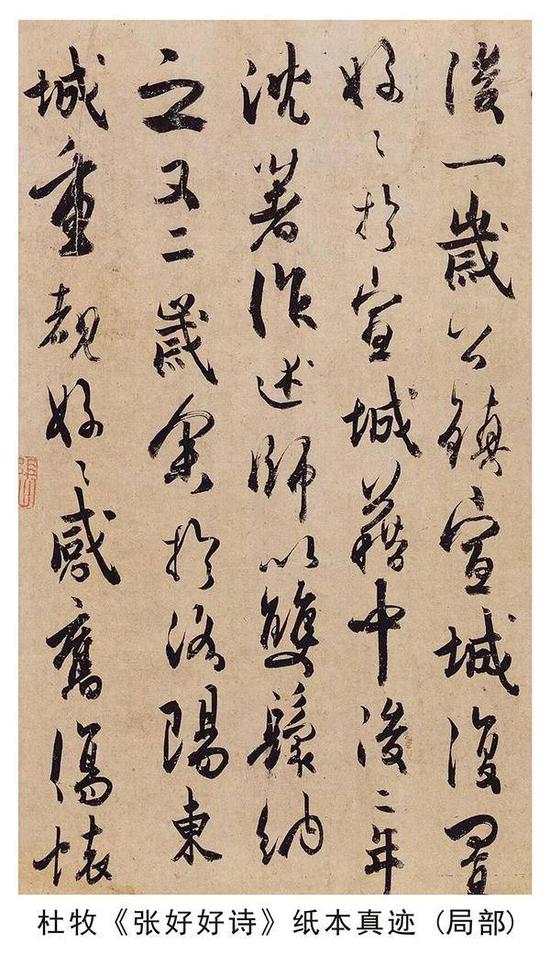 後一歲公鎮宣城復置
好〻於宣城籍中後二年
沈著作述師以雙鬟納
之又二歲余於洛陽東
城重覩好〻感舊傷懷
杜牧《张好好诗》纸本真迹 (局部)